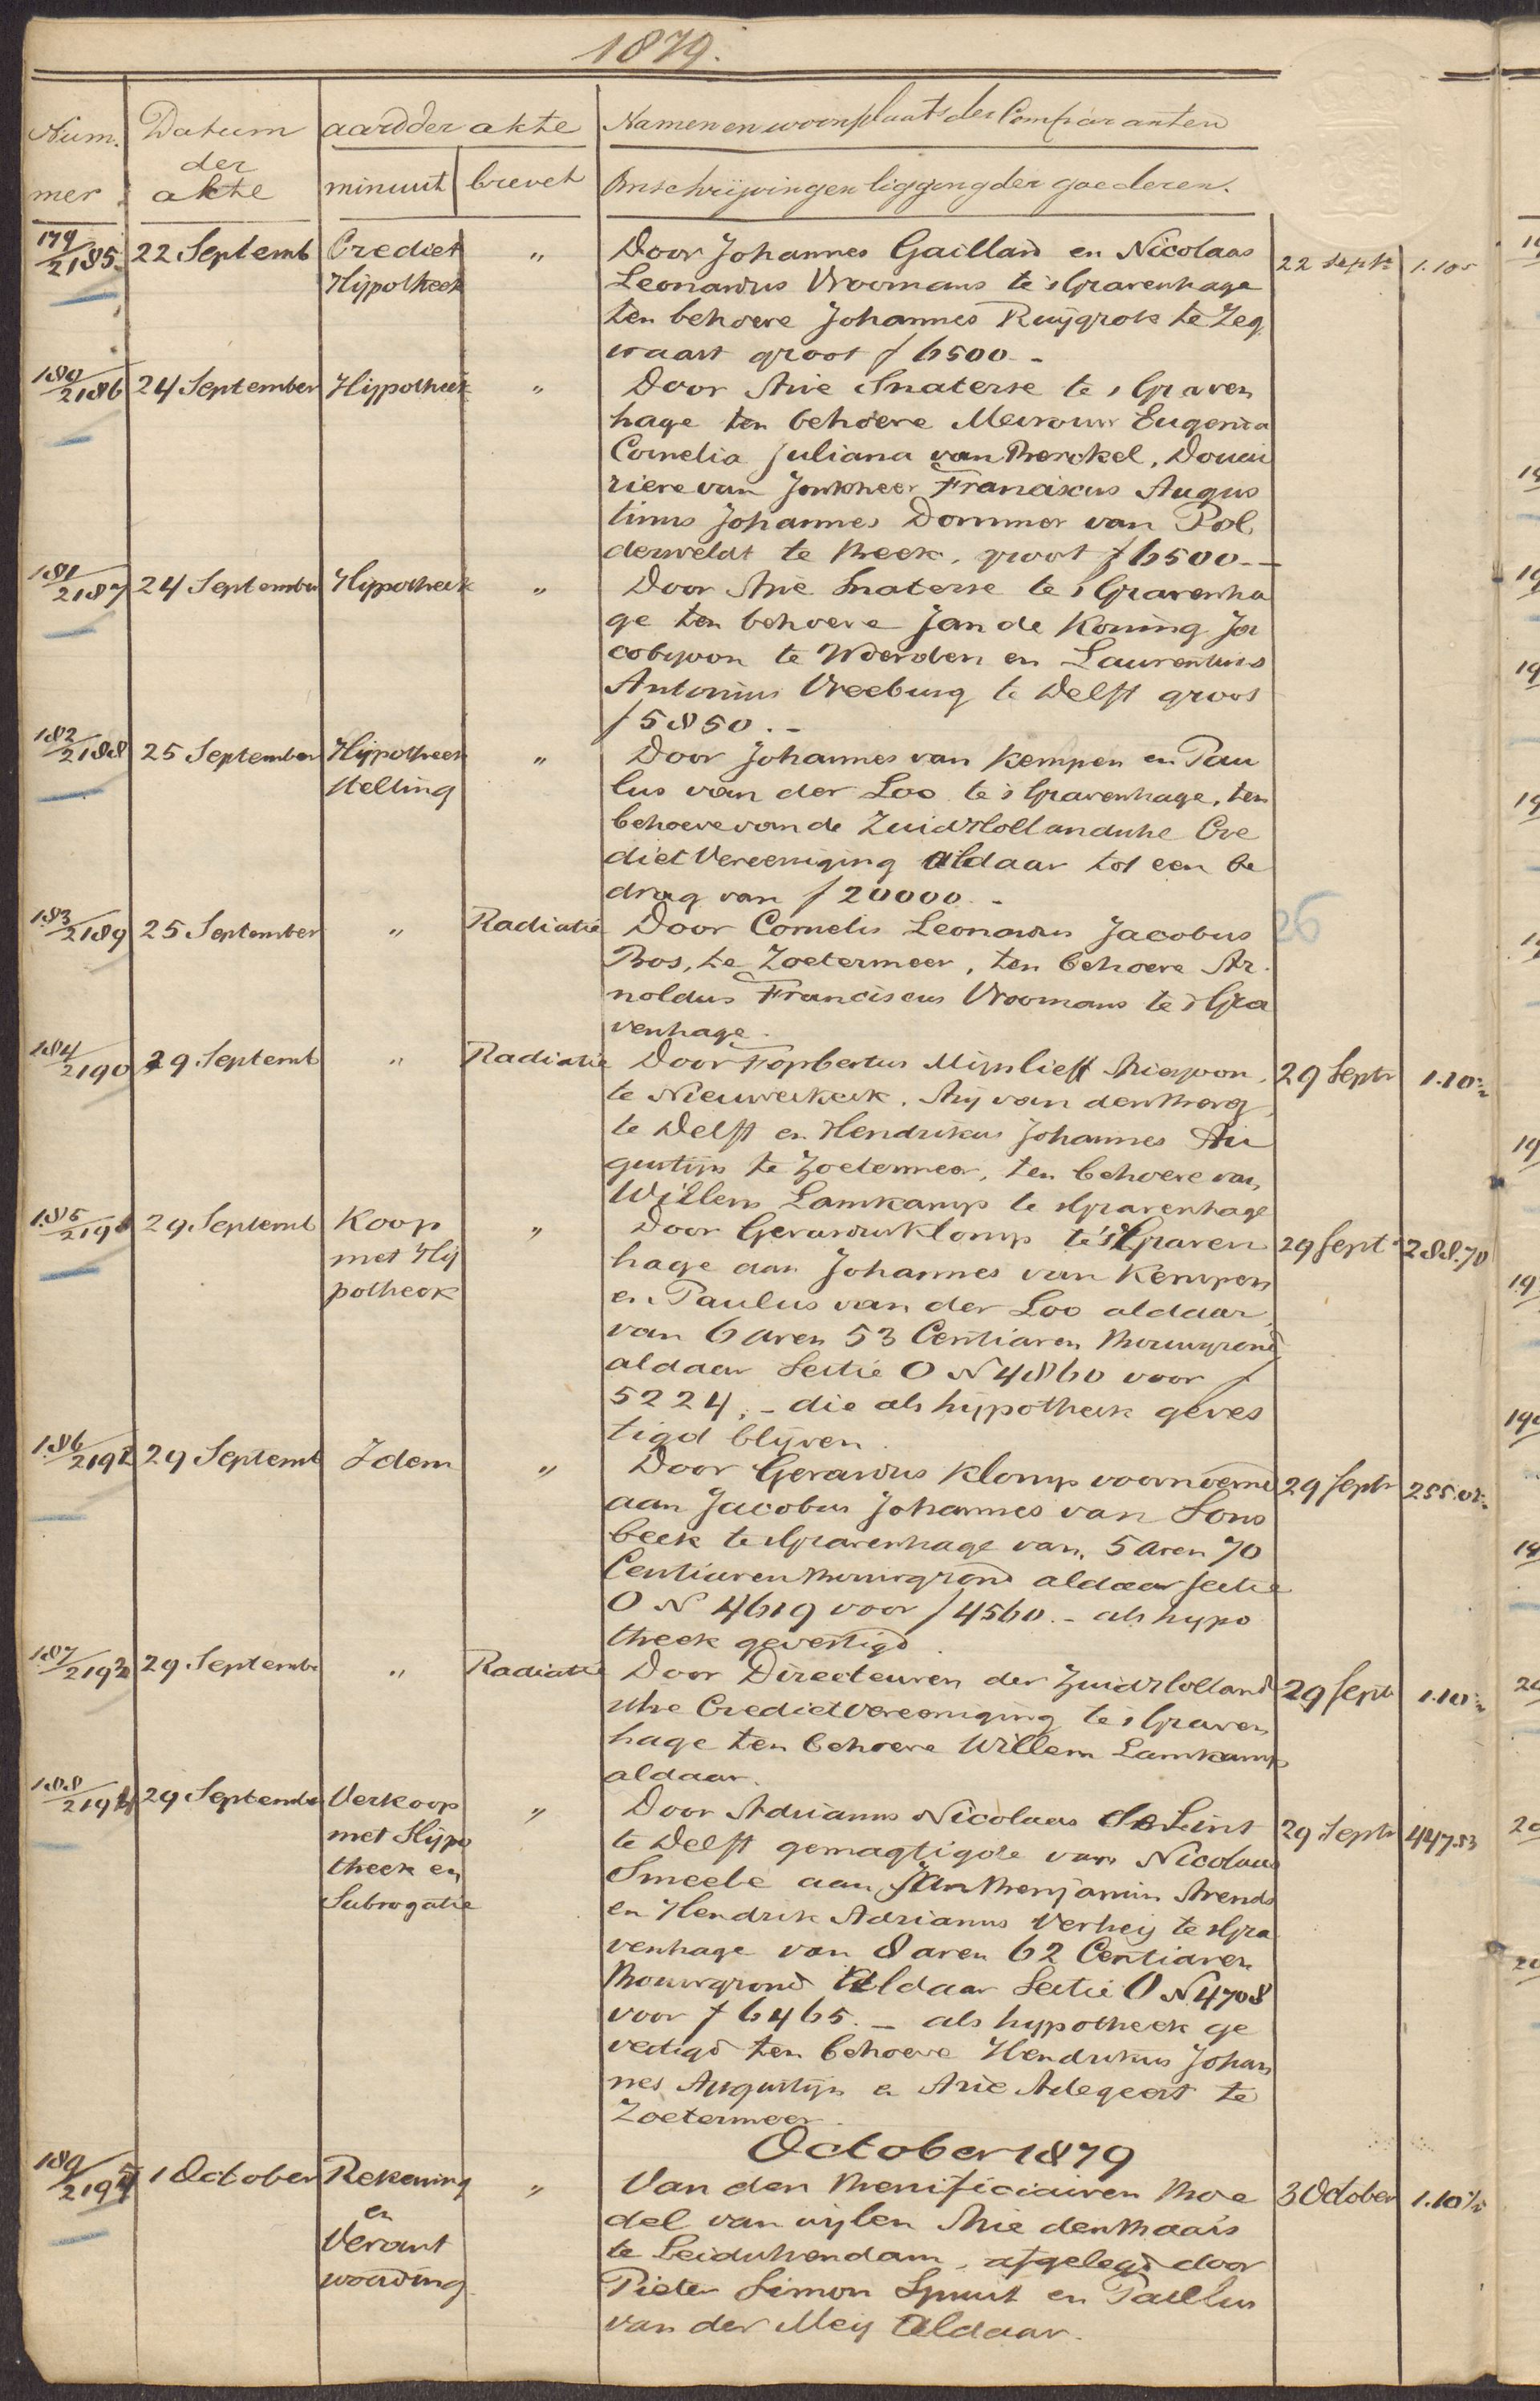 1879.
Num. Datum aard der akte Namen en woonplaats der Comparanten
mer der akte minuut brevet Omschrijving en ligging der goederen.
179/2185 22 Septemb Crediet „ Door Johannes Gaillard en Nicolaas 22 Sept 1.10
Hijpotheek Leonardus Vroomans te 's Gravenhage
ten behoeve Johannes Ruijgrok te Zeg
waart groot f 6500.-
180/2186 24 September Hijpotheek „ Door Arie Snaterse te 's Graven
hage ten behoeve Mevrouw Eugenia
Cornelia Juliana van Berckel, Douai
riere van Jonkheer Franciscus Augus
tinus Johannes Dommer van Pol
dersveldt te Beek, groot f 6500.-
181/2187 24 September Hijpotheek „ Door Arie Snaterse te 's Gravenha
ge ten behoeve Jan de Koning Ja
cobszoon te Woerden en Laurentius
Antonius Vreeburg te Delft groot
f 5850.-
182/2188 25 September Hijpotheek „ Door Johannes van Kempen en Pau
stelling lus van der Loo te 's Gravenhage, ten
behoeve van de Zuidhollandsche Cre
diet Vereeniging aldaar tot een be
drag van f 20000.-
183/2189 25 September „ Radiatie Door Cornelis Leonardus Jacobus 26
Bos, te Zoetermeer, ten behoeve Ar
noldus Franciscus Vroomans te 's Gra
venhage.
184/2190 29 Septemb „ Radiatie Door Fopbertus Mijnlieff Ariezoon, 29 Septr 1.10
te Nieuwerkerk, Arij van den Berg,
te Delft en Hendrikus Johannes Au
gustijn te Zoetermeer, ten behoeve van
Willem Lamkamp te 's Gravenhage
185/2191 29 Septemb Koop „ Door Gerardus Klomp te 's Graven 29 Sept 288.70
met Hij hage aan Johannes van Kempen
potheek en Paulus van der Loo aldaar,
van 6 aren 53 Centiaren Bouwgrond
aldaar Sectie O N 4860 voor f
5224.- die als hijpotheek geves
tigd blijven.
186/2192 29 Septemb Idem „ Door Gerardus Klomp voornoemd 29 Septr 255.05
aan Jacobus Johannes van Lons
beek te 's Gravenhage van 5 aren 70
Centiaren Bouwgrond aldaar sectie
O N 4619 voor f 4560.- als hypo
theek gevestigd.
187/2193 29 Septemb „ Radiatie Door Directeuren der Zuidholland 29 Sept 1.10
sche Credietvereeniging te 's Graven
hage ten behoeve Willem Lamkamp
aldaar.
188/2194 29 Septemb Verkoop „ Door Adrianus Nicolaas de Lint 29 Septr 447.53
met Hijpo te Delft gemagtigde van Nicolaas
theek en Smeele aan Jan Benjamin Arends
Subrogatie en Hendrik Adrianus Verheij te 's Gra
venhage van 8 aren 62 Centiaren
Bouwgrond aldaar Sectie O N 4708
voor f 6465.- als hypotheek ge
vestigd ten behoeve Hendrikus Johan
nes Augustijn en Arie Adegeest te
Zoetermeer.
October 1879
189/2195 1 October Rekening „ Van den Benificiairen Boe 3 October 1.10½
en del van wijlen Arie den Baars
Verant te Leidschendam, afgelegd door
woording Pieter Simon Spruit en Paulus
van der Meij aldaar.